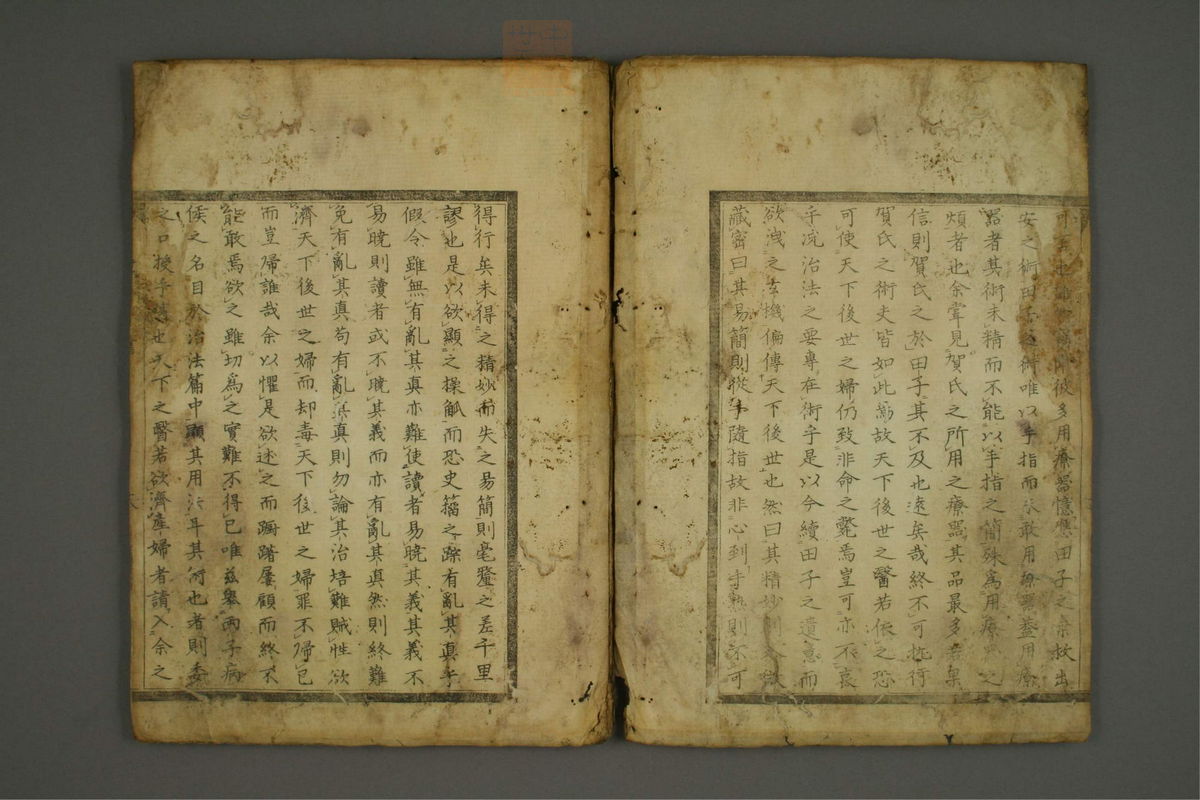 彼多用療器憶悪田子之未救出
安之術田子之術唯以手指而不敢用療器蓋用療
器者其術未精而不能以手指之簡殊為用療器之
煩者也余甞見賀氏之所用之療器其品最多若無
信則賀氏之於田子其不及也遠矣哉終不可施行
賀氏之術夫皆如此故天下後世之醫若依之恐
可使天下後世之婦仍致非命之斃焉豈可亦不哀
乎况治法之要專在術乎是以今續田子之遺意而
欲洩之玄機偏傳天下後世也然曰其精妙則
藏密曰其易簡則從手隨指故非心到手熟則不可
得行矣未得之精妙而失之易簡則毫釐之差千里
謬也是以欲顯之操觚而恐史籀之蹤有亂其真乎
假令雖無有亂其真亦難使讀者易曉其義其義不
易曉則讀者或不曉其義而亦有亂其真然則終難
免有亂其真苟有亂其真則勿論其治培難賊性欲
濟天下後世之婦而却毒天下後世之婦罪不帰已
而豈帰誰哉余以懼是欲述之而躊躇屢顧而終不
能敢焉欲之雖切為之實難不得已唯玆舉兩子病
候之名目於治法篇中顯其用法耳其術也者則委
之口授手傳也天下之醫若欲濟產婦者請入余之